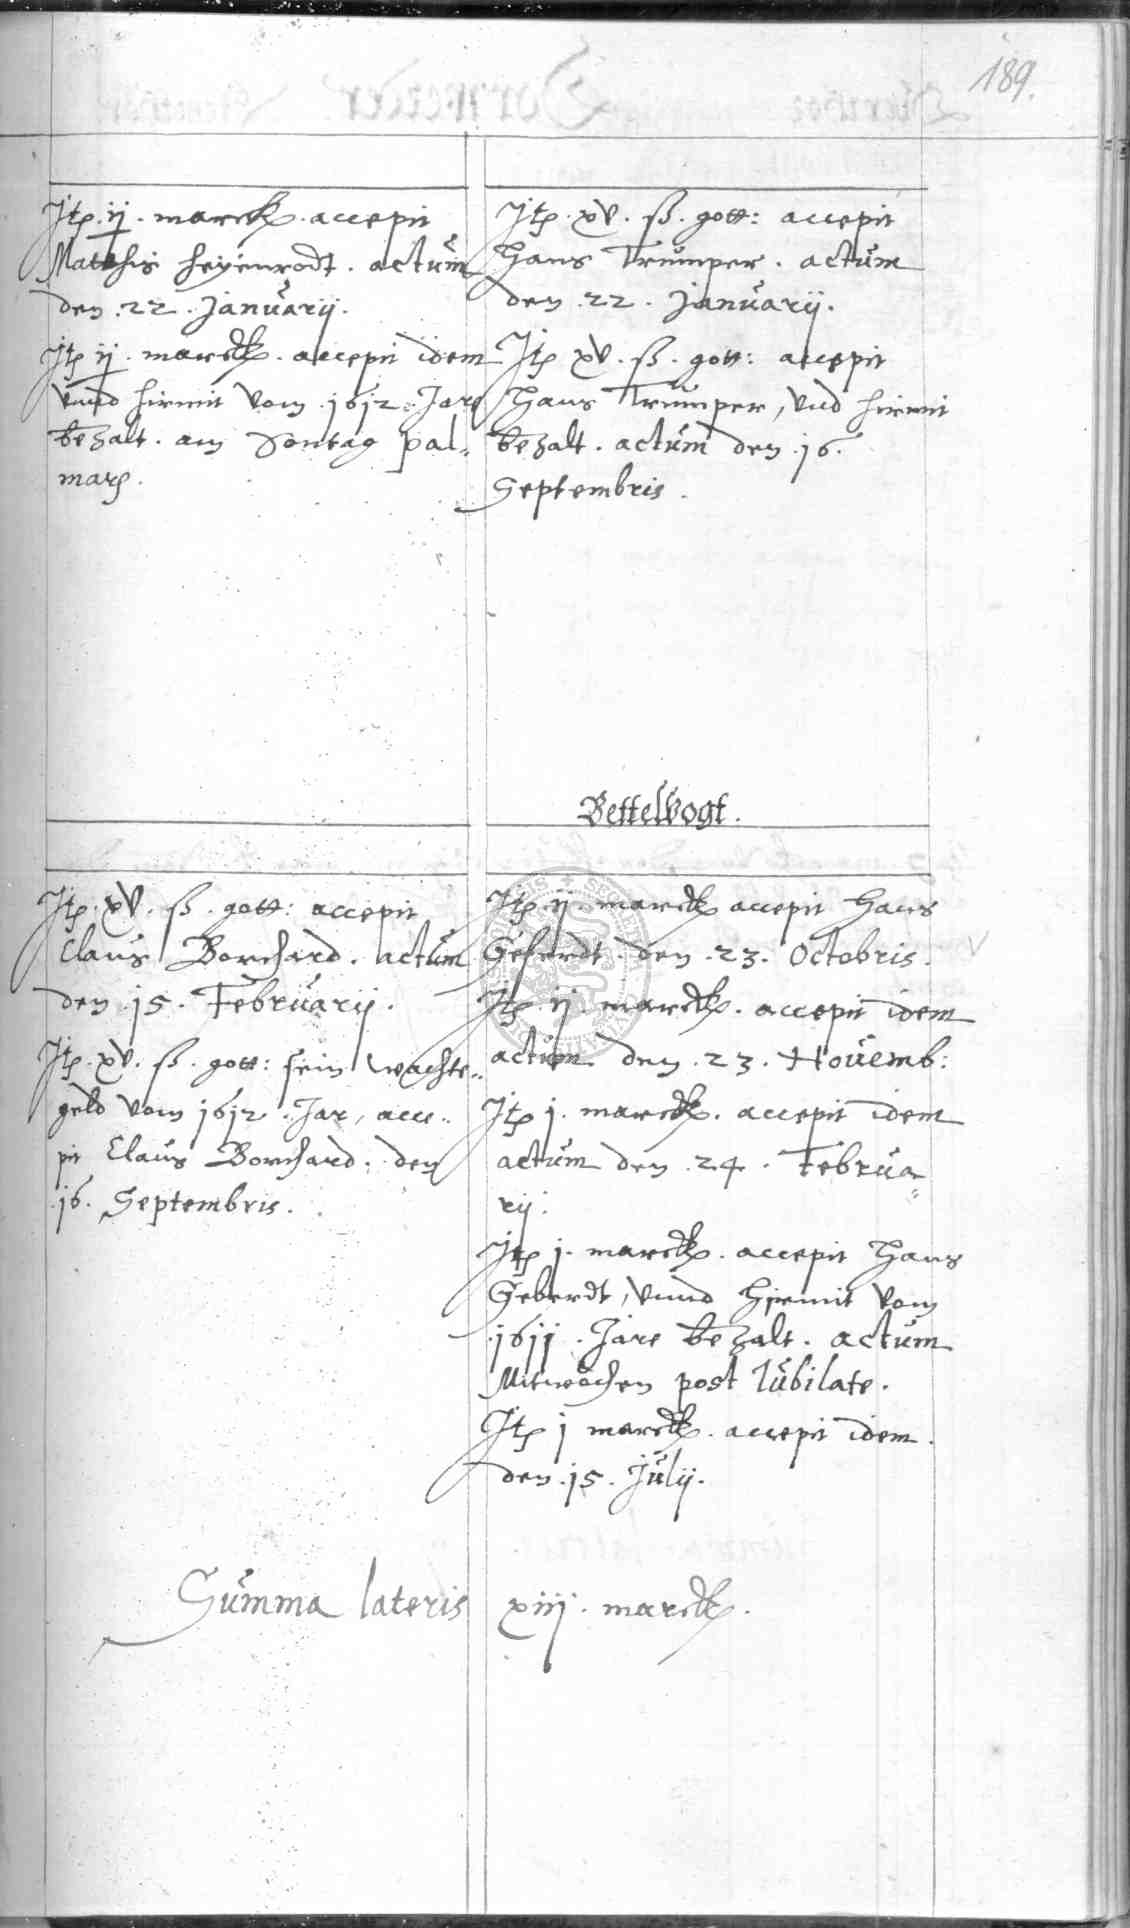 189.
Jtem .ij. marck. accepit
Matthis heyenrodt. actum
den .22. Januarij.
Jtem ij. marck. accepit idem
vnnd hirmit vom .1612. Jare
bezalt. am Sontag pal„
marum.
Jtem. xv. ß. gott: accepit
Hans Trumper. actum
den .22. Januarij.
Jtem xv. ß. gott: accepit
Hans Trumper, vnd hirmit
bezalt. actum den .16.
Septembris.
Bettelvogt.
Jtem. xv. ß. gott: accepit
Claus Borchard. actum
den .15. Februarij.
Jtem. xv. ß. gott: sein wachte„
geld vom 1612. Jar, acce„
pit Claus Borchard. den
.16. Septembris.
Jtem .ij. marck accepit Hans
Geherdt. den .23. Octobris.
Jtem .ij. marck. accepit idem
actum den .23. Nouemb:
Jtem j. marck. accepit idem
actum den .24. Februa„
rij.
Jtem j. marck. accepit Hans
Geberdt, vnnd hirmit vom
.1611. Jare bezalt. actum
Mitwochen post Iubilate.
Jtem j marck. accepit idem.
den .15. Julij.
Summa lateris xiij. marck.